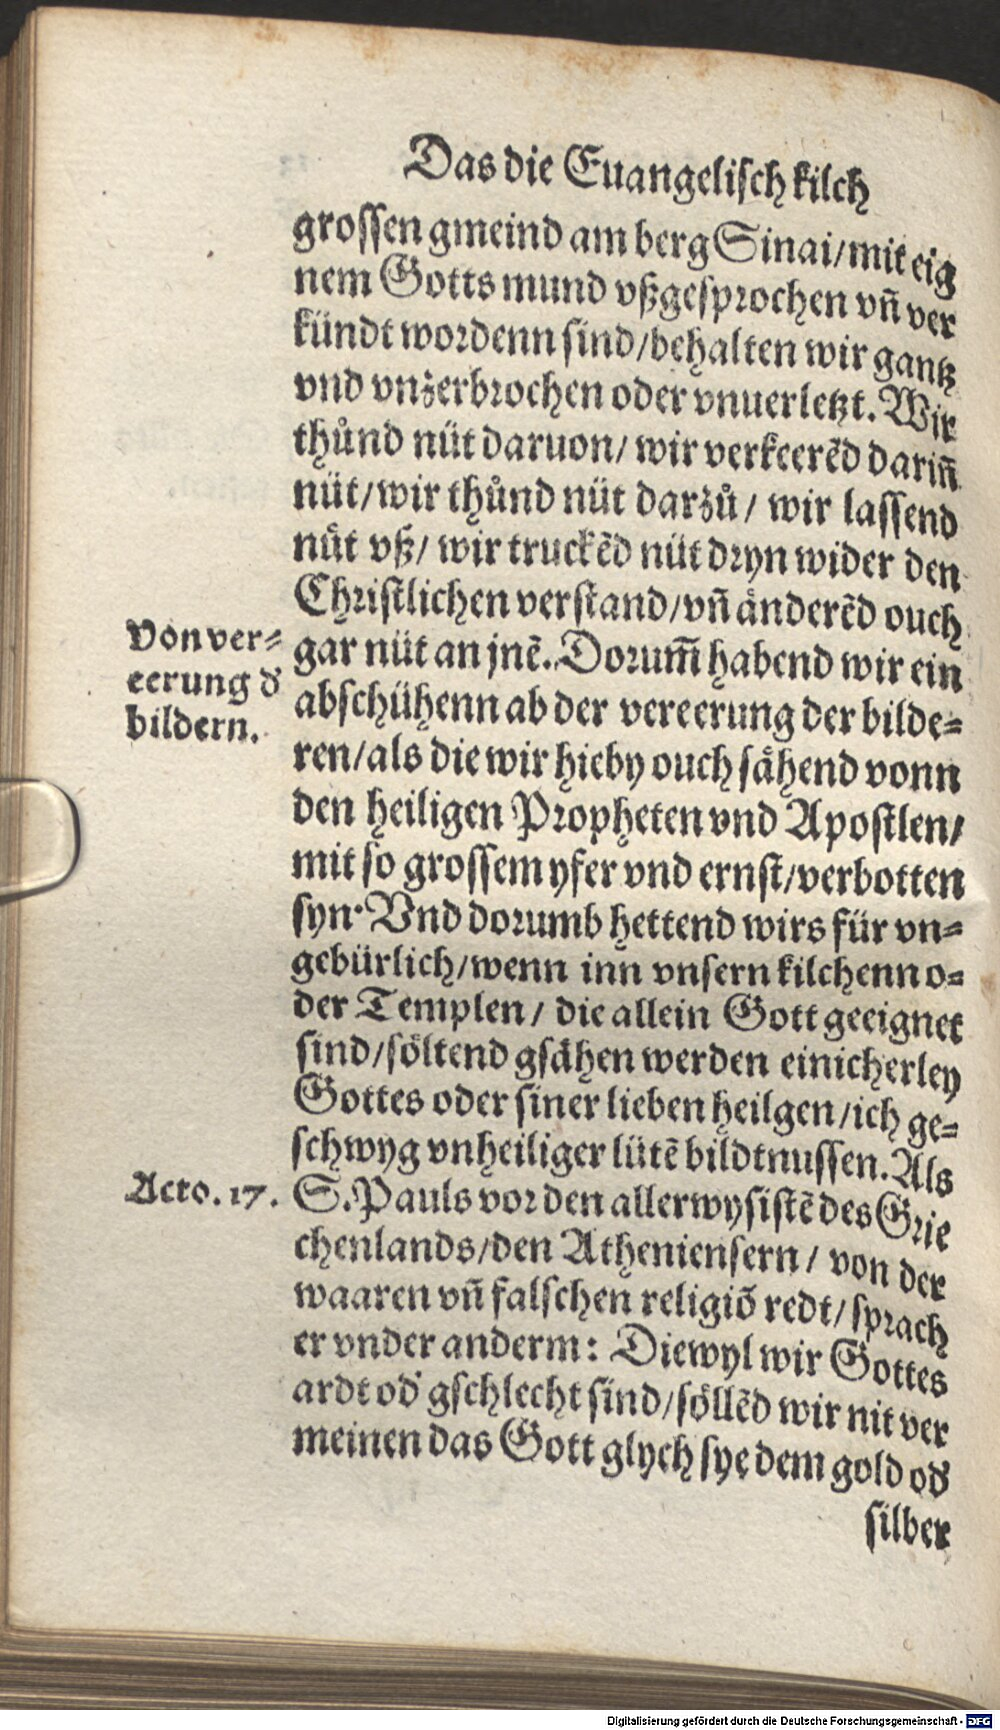 Das die Euangelisch kilch
grossen gmeind am berg Sinai/mit eig
nem Gotts mund vßgesprochen vñ ver
kündt wordenn sind/behalten wir gantz
vnd vnzerbrochen oder vnuerletzt. Wir
thůnd nüt daruon/ wir verkeerẽd dariñ
nüt/wir thůnd nüt darzů/ wir lassend
nüt vß/ wir truckẽd nüt dryn wider den
Christlichen verstand/vñ änderẽd ouch
Von ver-
eerung d'
bildern.
gar nüt an jnẽ. Dorum̃ habend wir ein
abschühenn ab der vereerung der bilde-
ren/als die wir hieby ouch sähend vonn
den heiligen Propheten vnd Apostlen/
mit so grossem yfer vnd ernst/verbotten
syn. Vnd dorumb hettend wirs für vn-
gebürlich/wenn inn vnsern kilchenn o-
der Templen/ die allein Gott geeignet
sind/söltend gsähen werden einicherley
Gottes oder siner lieben heilgen/ich ge-
schwyg vnheiliger lütẽ bildtnussen. Als
Acto. 17.
S. Pauls vor den allerwysistẽ des Grie
chenlands/den Atheniensern/ von der
waaren vñ falschen religiõ redt/sprach
er vnder anderm: Diewyl wir Gottes
ardt od' gschlecht sind/söllẽd wir nit ver
meinen das Gott glych sye dem gold od'
silber
Digitalisierung gefördert durch die Deutsche Forschungsgemeinschaft - DFG